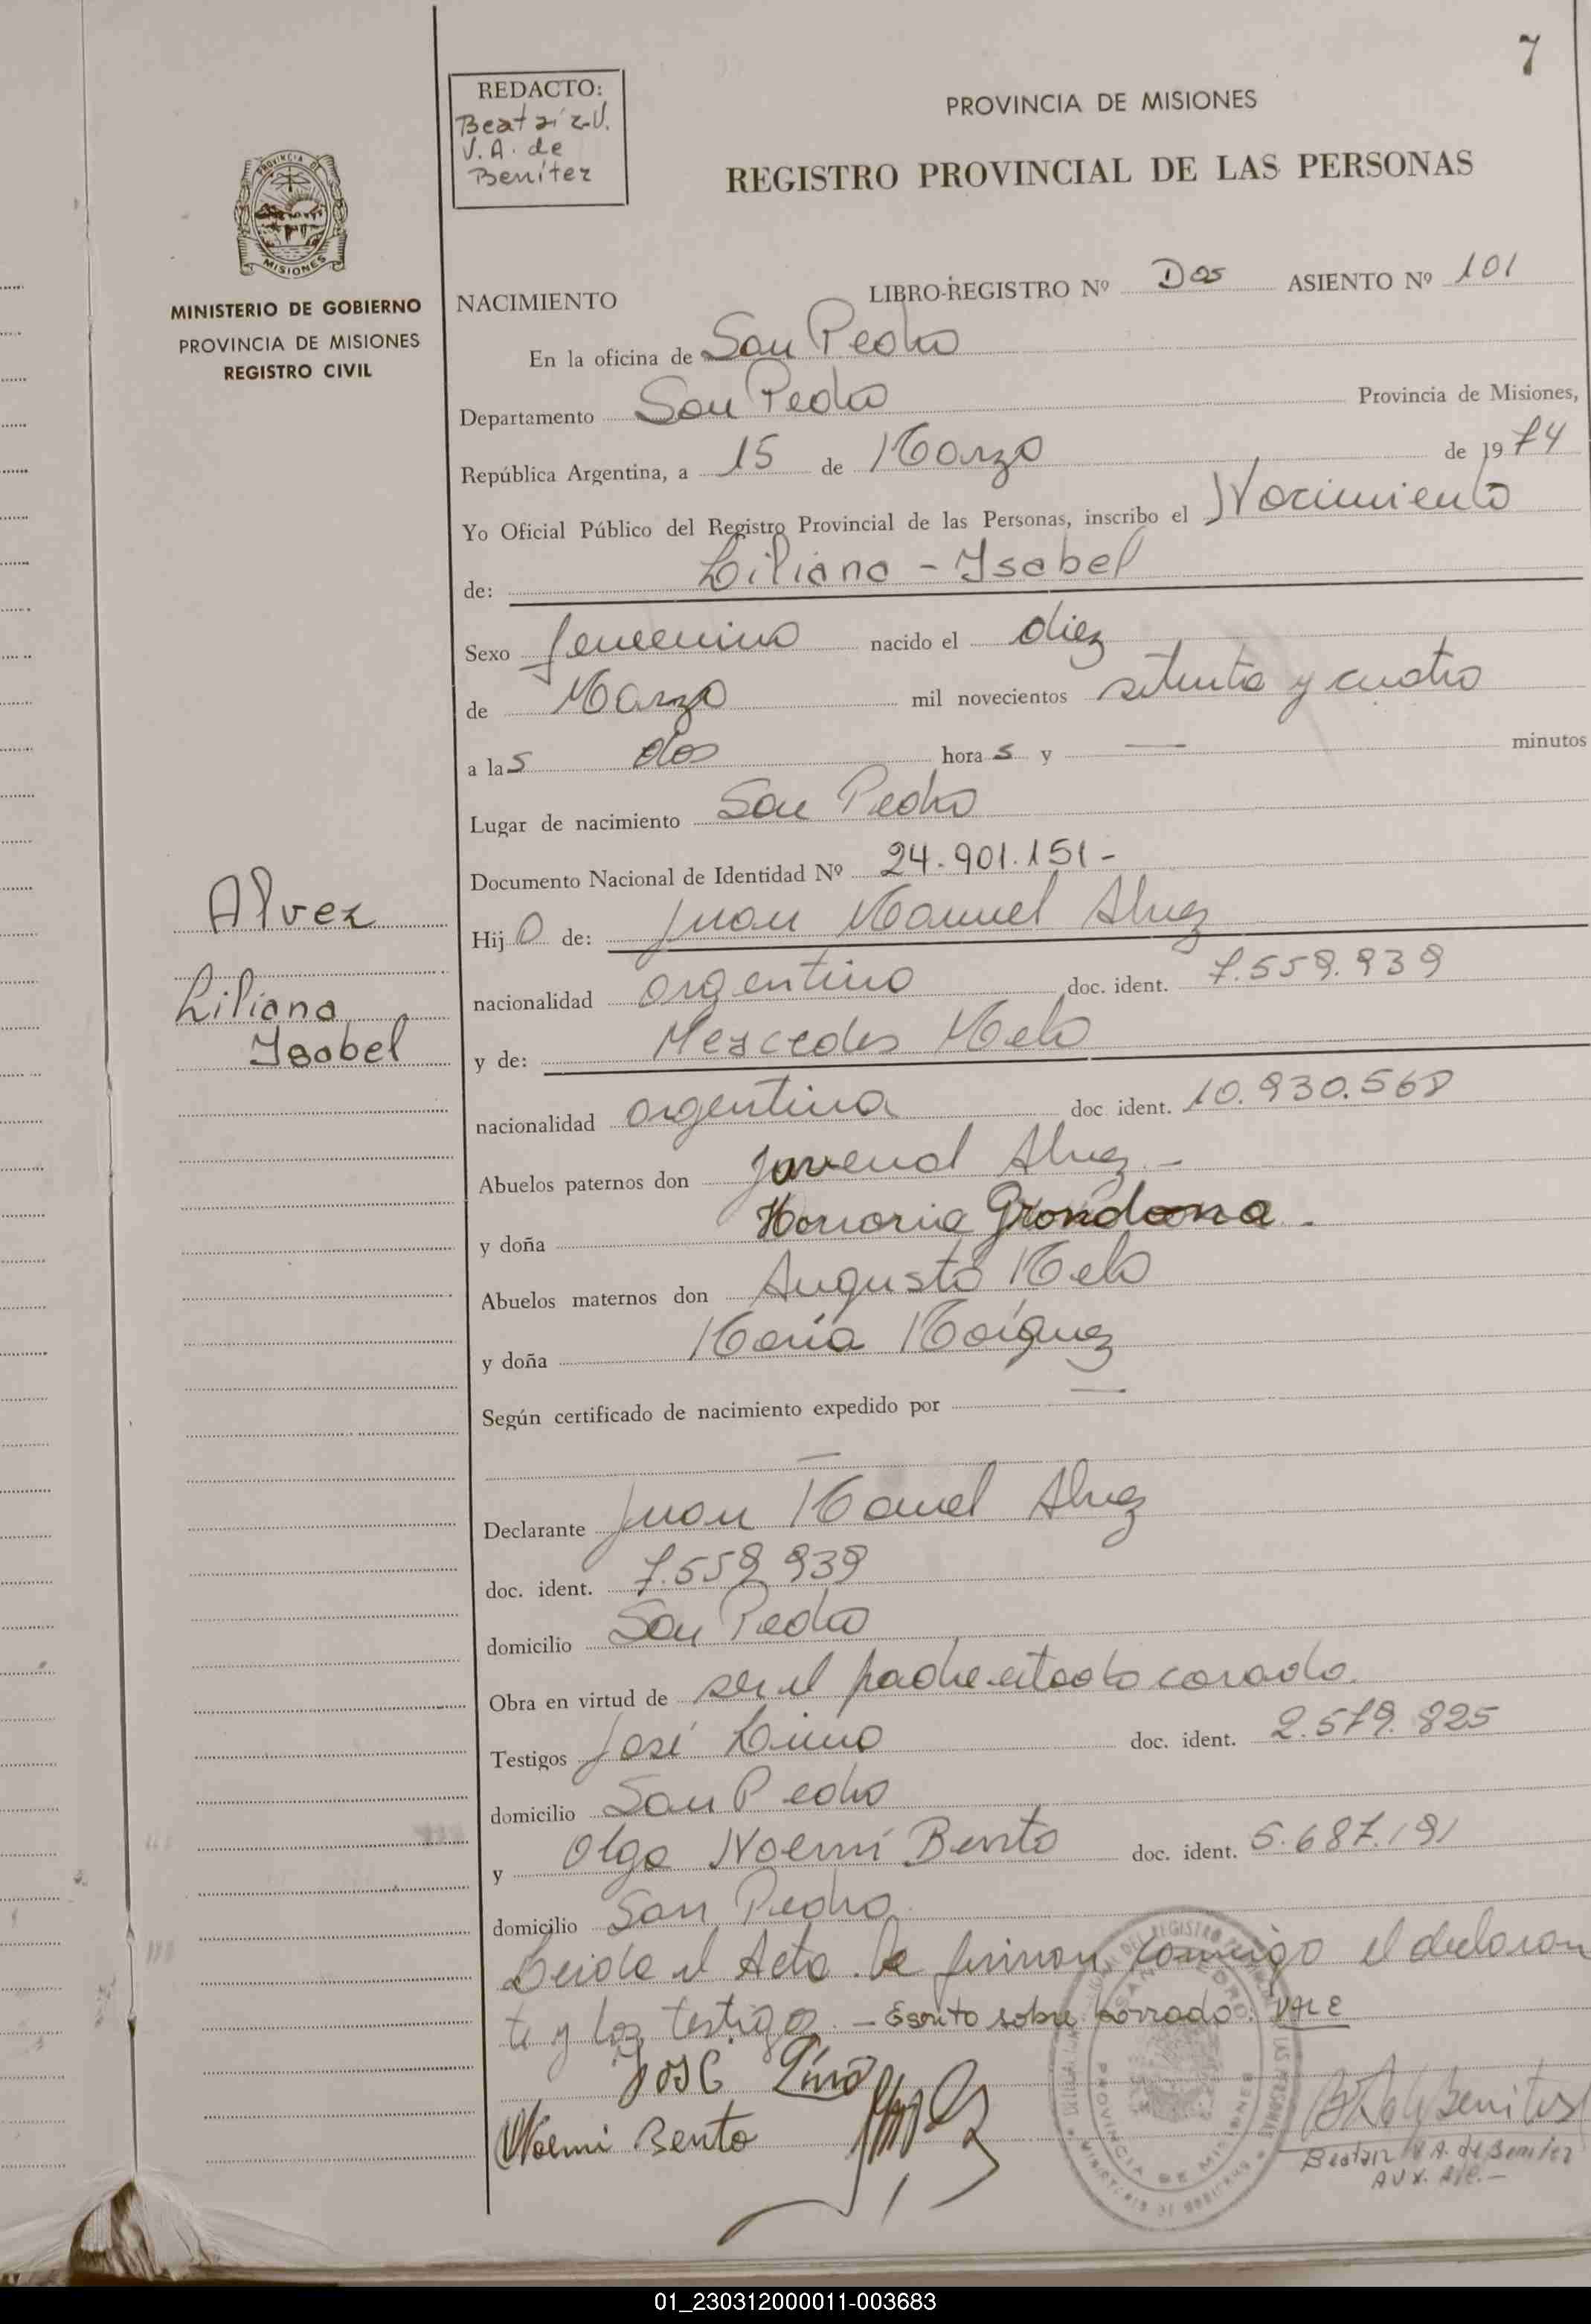 7
REDACTO:
Beatriz V.
V. A. de
Benítez
PROVINCIA DE MISIONES
REGISTRO PROVINCIAL DE LAS PERSONAS
PROVINCIA DE
MISIONES
MINISTERIO DE GOBIERNO
PROVINCIA DE MISIONES
REGISTRO CIVIL
NACIMIENTO LIBRO-REGISTRO Nº Dos ASIENTO Nº 101
En la oficina de San Pedro
Departamento San Pedro Provincia de Misiones,
República Argentina, a 15 de Marzo de 1974
Yo Oficial Público del Registro Provincial de las Personas, inscribo el Nacimiento
de: Liliana - Isabel
Sexo femenino nacido el diez
de Marzo mil novecientos setenta y cuatro
a las dos horas y — minutos
Lugar de nacimiento San Pedro
Documento Nacional de Identidad Nº 24.901.151-
Alvez
Hija de: Juan Manuel Alvez
nacionalidad argentino doc. ident. 7.559.939
Liliana
Isabel
y de: Mercedes Melo
nacionalidad argentina doc ident. 10.930.568
Abuelos paternos don Juvenal Alvez -
y doña Honoria Grondona.
Abuelos maternos don Augusto Melo
y doña María Maíquez
Según certificado de nacimiento expedido por —
—
Declarante Juan Manuel Alvez
doc. ident. 7.559.939
domicilio San Pedro
Obra en virtud de ser el padre estado casado.
Testigos José Lino doc. ident. 2.579.825
domicilio San Pedro
y Olga Noemí Bento doc. ident. 5.687.191
domicilio San Pedro
Leida el Acta la firman conmigo el declaran
te y los testigos. - Escrito sobre borrado: VALE
José Lino
Noemi Bento
Beatriz V. A. de Benitez
AUX.
PROVINCIA DE MISIONES
01_230312000011-003683